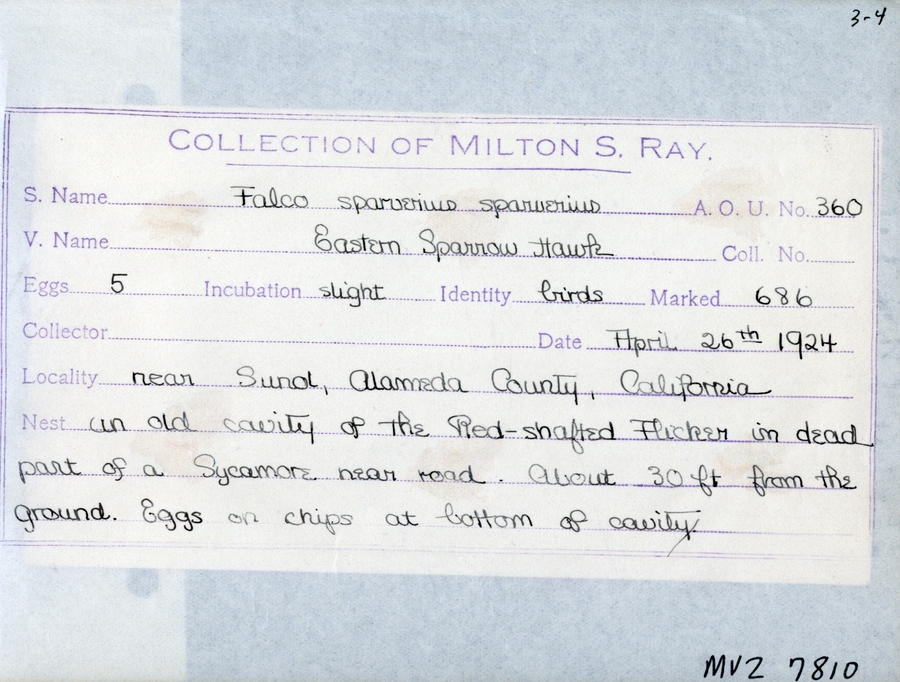 3-4
COLLECTION OF MILTON S. RAY.
S. Name Falco sparverius sparverius A. O. U. No. 360
V. Name Eastern Sparrow Hawk Coll. No.
Eggs 5 Incubation slight Identity birds Marked 686
Collector Date April 26th 1924
Locality near Sunol, Alameda County, California
Nest in old cavity of the Red-shafted Flicker in dead
part of a Sycamore near road. About 30 ft from the
ground. Eggs on chips at bottom of cavity.
MVZ 7810